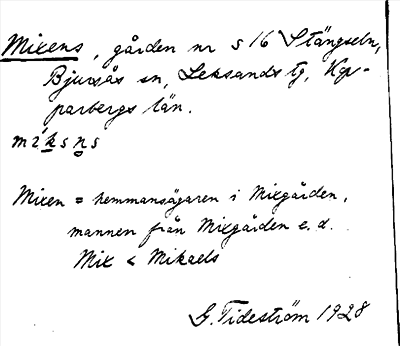 Mixens, gården nr s 16 Stängseln,
Bjursås sn, Leksands tg, Kop-
parbergs län.
míksns
Mixen = hemmansägaren i Mixgården,
mannen från Mixgården e. d.
Mix < Mikaels
G. Tideström 1928